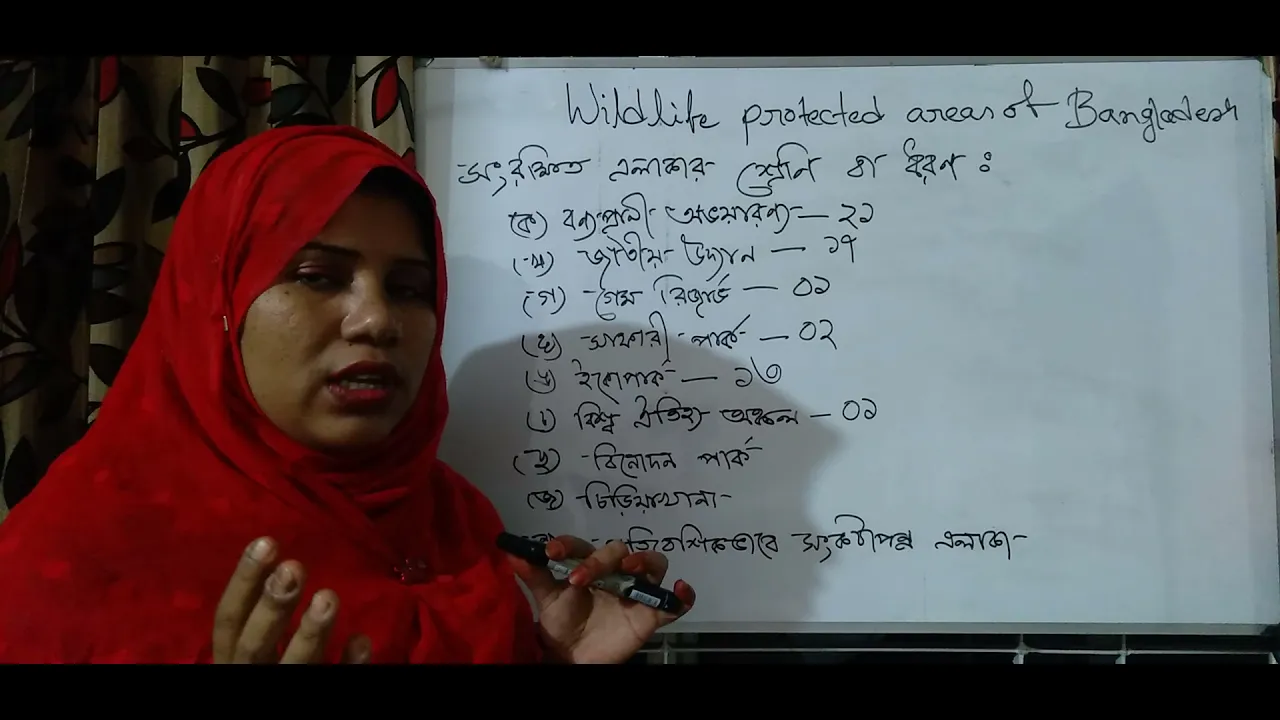 Wildlife protected areas of Bangladesh
সংরক্ষিত এলাকার শ্রেনি বা ধরণ ঃ
(ক) বন্যপ্রানী অভয়ারন্য — ২১
(খ) জাতীয় উদ্যান — ১৭
(গ) গেম রিজার্ভ — ০১
(ঘ) সাফারী পার্ক — ০২
(ঙ) ইকোপার্ক — ১৩
(চ) বিশ্ব ঐতিহ্য অঞ্চল — ০১
(ছ) বিনোদন পার্ক
(জ) চিড়িয়াখানা
সংকটাপন্ন এলাকা